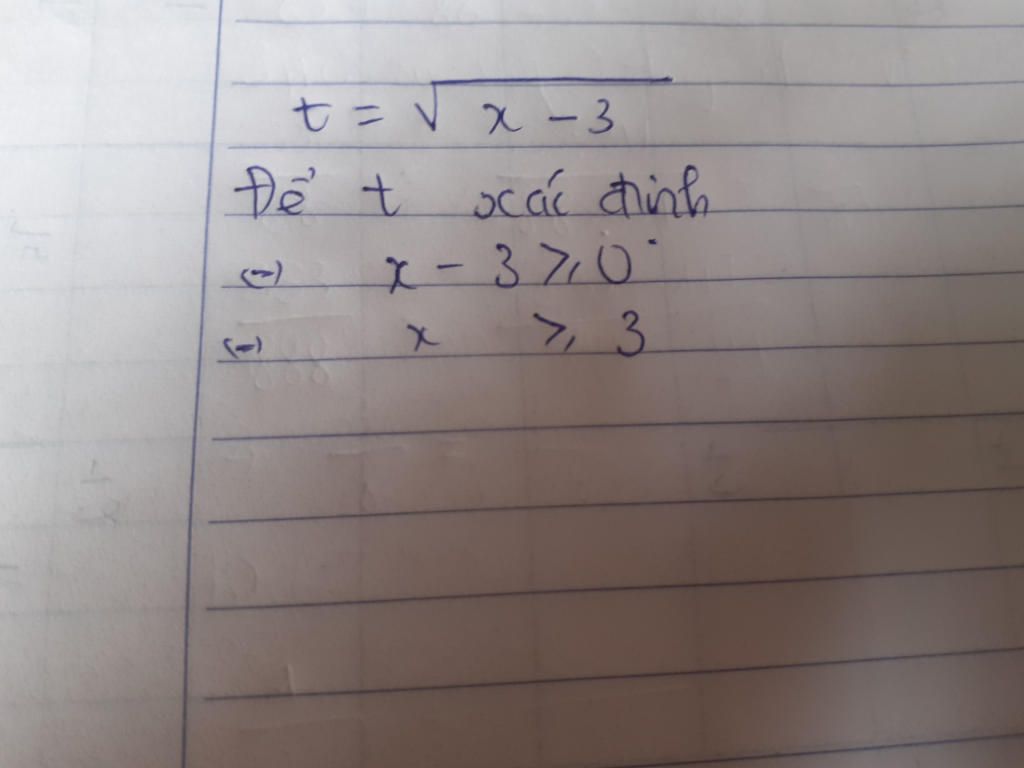 t = √x - 3
Để t xác định
<=> x - 3 ≥ 0
<=> x ≥ 3